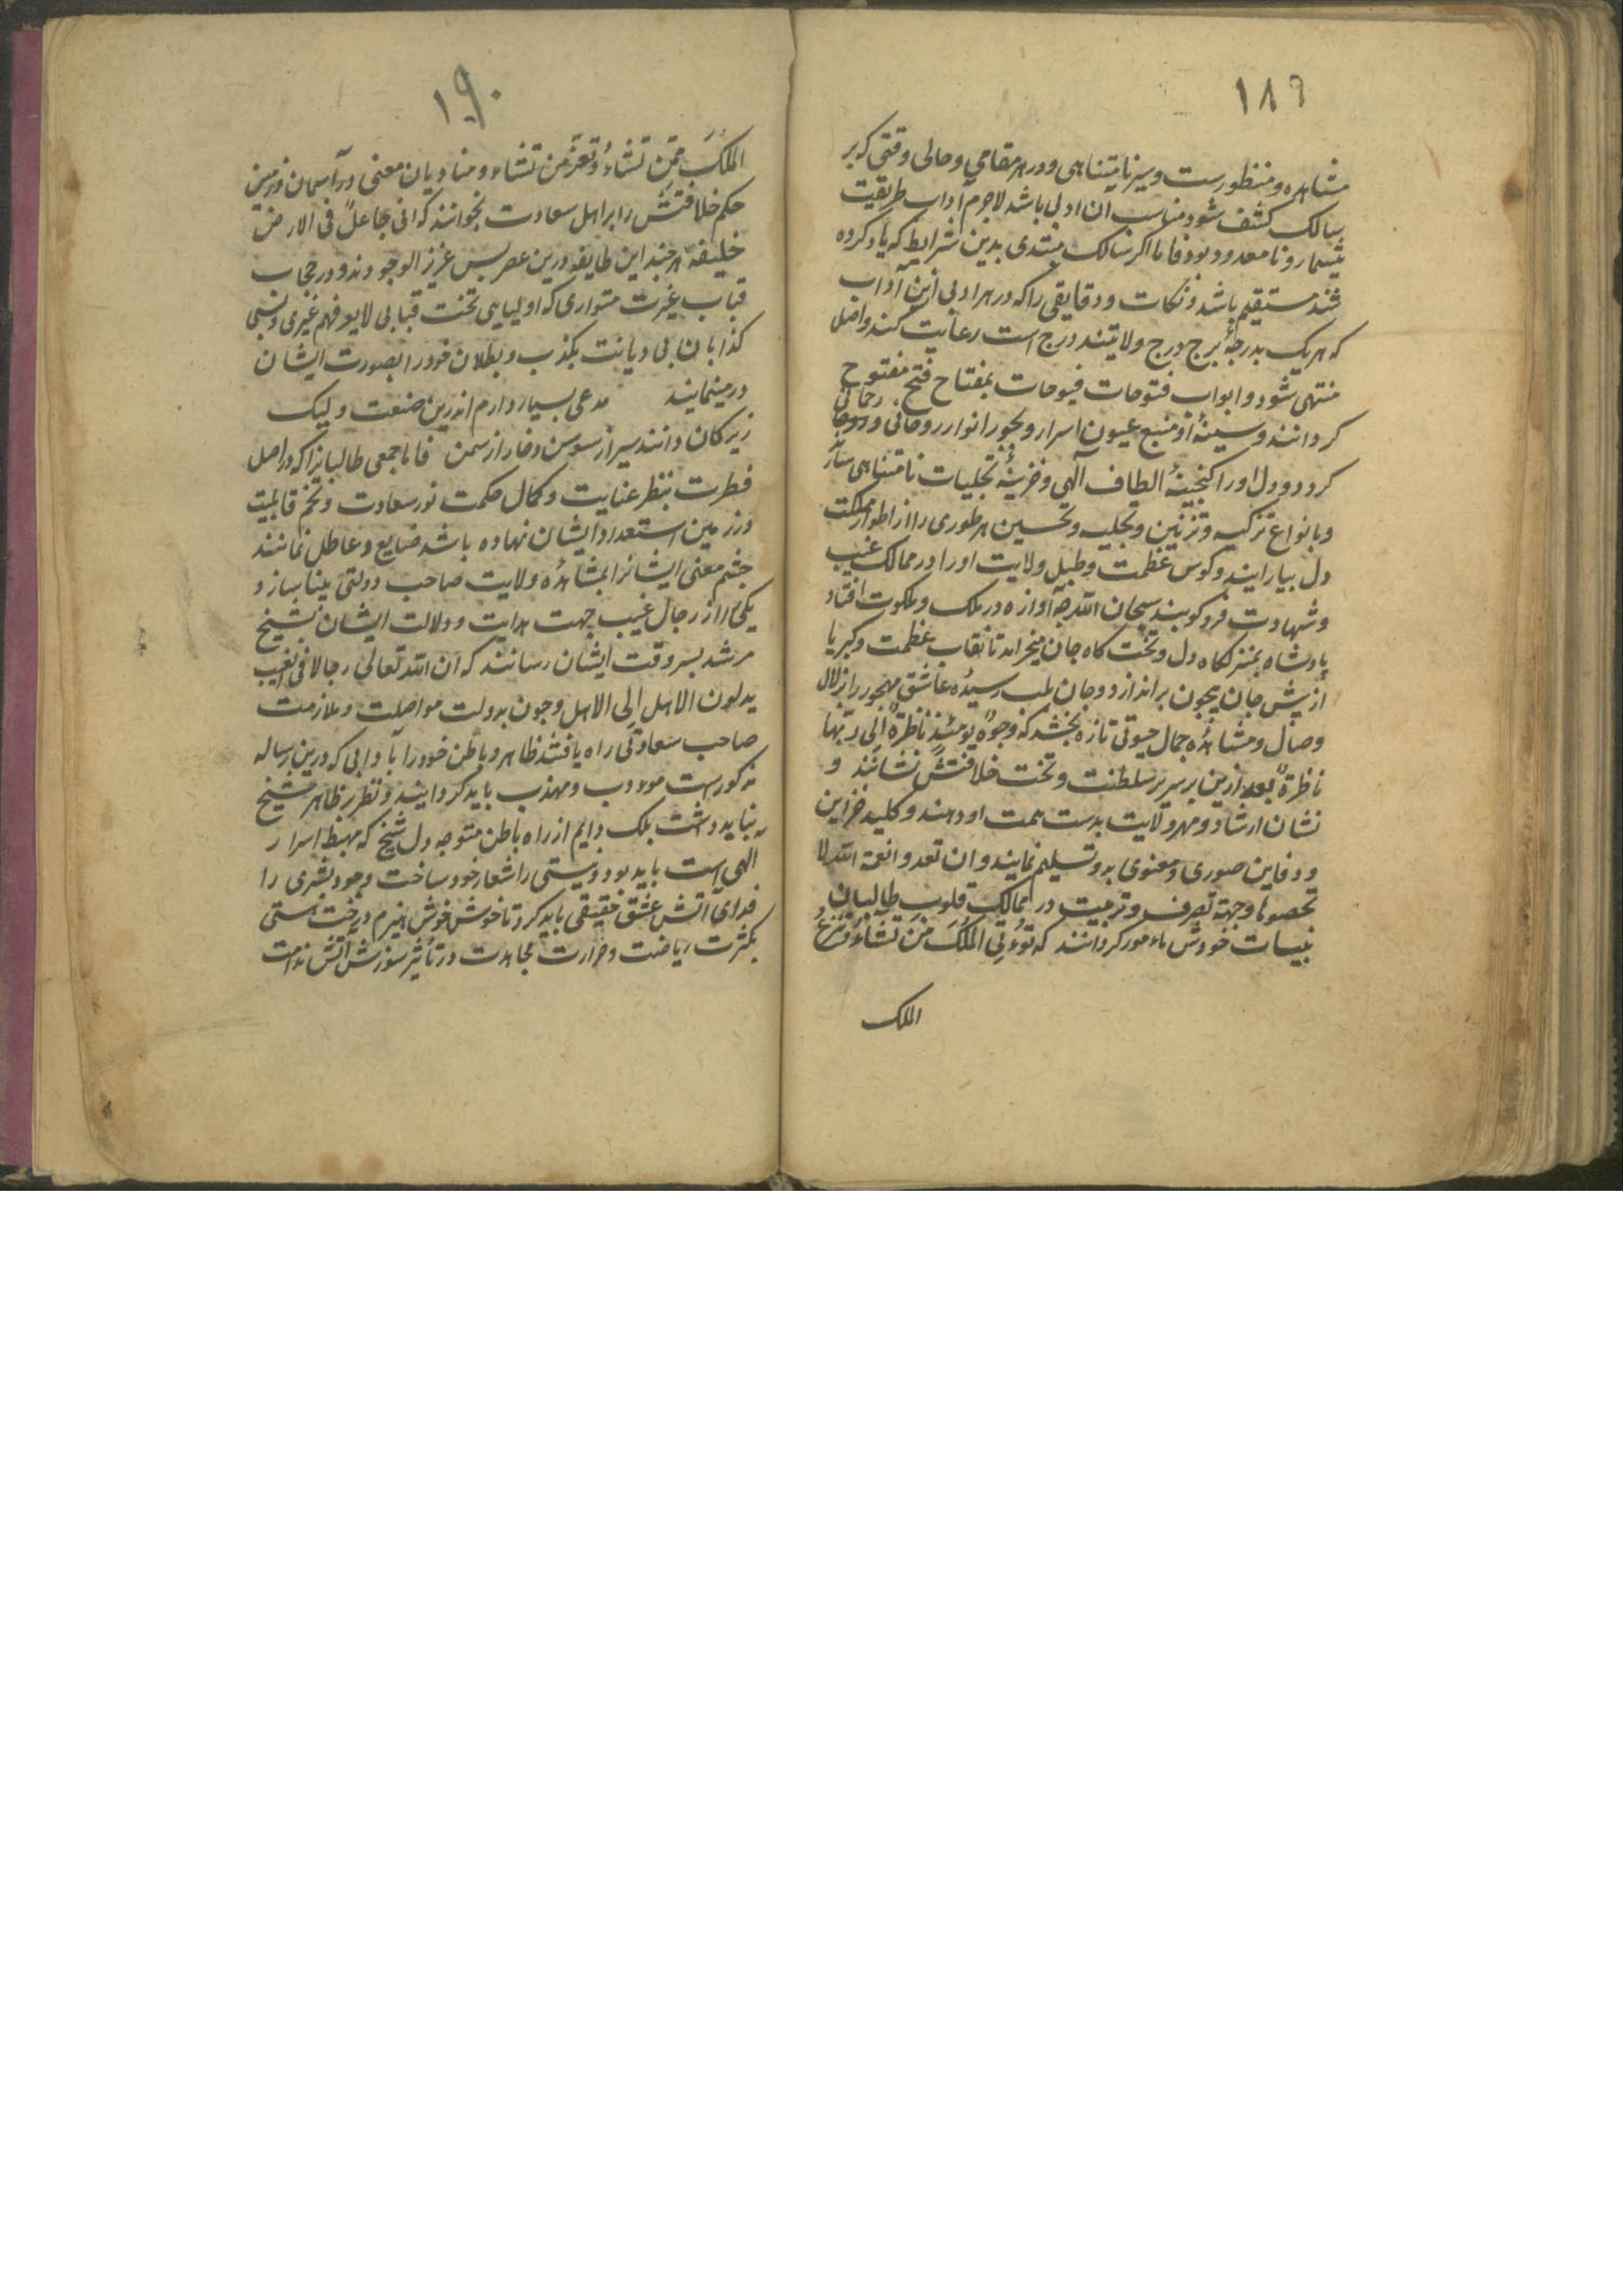 ۱۸۹
مشاهده و منظورست و سیر نامتناهی و در هر مقامی و حالی و وقتی که بر
سالک کشف شود مناسب آن ادبی باشد لاجرم آداب طریقت
بیشمار و نامعدود بود فاما اگر سالک مبتدی بدین شرایط که یاد کرده
شد مستقیم باشد و نکات و دقایقی را که در هر ادبی ازین آداب
که هر یک بدرجهٔ برج درج ولایتند درج است رعایت کند واصل
منتهی شود و ابواب فتوحات فیوحات بمفتاح فتح مفتوح
کردانند و سینهٔ او منبع عیون اسرار و بحور انوار روحانی و رحمانی
کردد و دل او را کنجینهٔ الطاف الهی و خزینهٔ تجلیات نامتناهی سازند
و بانواع تزکیه و تزئین و تجلیه و تحسین هر طوری را از اطوار مملکت
دل بیارایند و کوس عظمت و طبل ولایت او را در ممالک غیب
و شهادت فرو کوبند سبحان الله چه آوازه در ملک و ملکوت افتاد
پادشاه بمنزلکاه دل و تخت کاه جان میخرامد تا نقاب عظمت و کبریا
از پیش جان بیچون براندازد و جان بلب رسیدهٔ عاشق مهجور را زلال
وصال و مشاهدهٔ جمال حیوتی تازه بخشد که وجوهٌ یومئذٍ ناظرةٌ الی ربّها
ناظرةٌ بعد ازین بر سریر سلطنت و تخت خلافتش نشانند و
نشان ارشاد و مهر ولایت بدست همت او دهند و کلید خزاین
و دفاین صوری و معنوی بدو تسلیم نمایند و ان تعدوا نعمة الله لا
تحصوها و جهة تصرف و تربیت در ممالک قلوب طالبان
بنیابت خودش مامور کردانند که تؤتی الملک من تشاءُ و تنزعُ
الملک
۱۹۰
الملکَ ممّن تشاءُ و تعزّ من تشاء و منادیان معنی در آسمان و زمین
حکم خلافتش را بر اهل سعادت بخوانند که انی جاعلٌ فی الارض
خلیفة هر چند این طایفه درین عصر بس عزیز الوجودند و در حجاب
قباب غیرت متواری که اولیایی تحت قبابی لایعرفهم غیری و بسی
کذابان بی دیانت بکذب و بطلان خود را بصورت ایشان
در مینمایند   مدعی بسیار دارم اندرین صنعت ولیک
زیرکان دانند سیر از سوسن و خار از سمن   فاما جمعی طالبانرا که در اصل
فطرت بنظر عنایت و کمال حکمت نور سعادت و تخم قابلیت
در زمین استعداد ایشان نهاده باشد ضایع و عاطل نمانند
چشم معنی ایشانرا بمشاهدهٔ ولایت صاحب دولتی بینا سازد
یکی را از رجال غیب جهت هدایت و دلالت ایشان بشیخ
مرشد بسر وقت ایشان رسانند که ان الله تعالی رجالا فی الغیب
یدلون الاهل الی الاهل و چون بدولت مواصلت و ملازمت
صاحب سعادتی راه یافتند ظاهر و باطن خود را بآدابی که درین رساله
مذکورست مودب و مهذب باید کردانید و نظر بر ظاهر شیخ
نباید داشت بلک دایم از راه باطن متوجه دل شیخ که مهبط اسرار
الهی است باید بود و دوستی را شعار خود ساخت وجود بشری را
فدای آتش عشق حقیقی باید کرد تا خوش خوش هیزم درخت هستی
بکثرت ریاضت و حرارت مجاهدت در تأثیر سوزش آتش ندامت